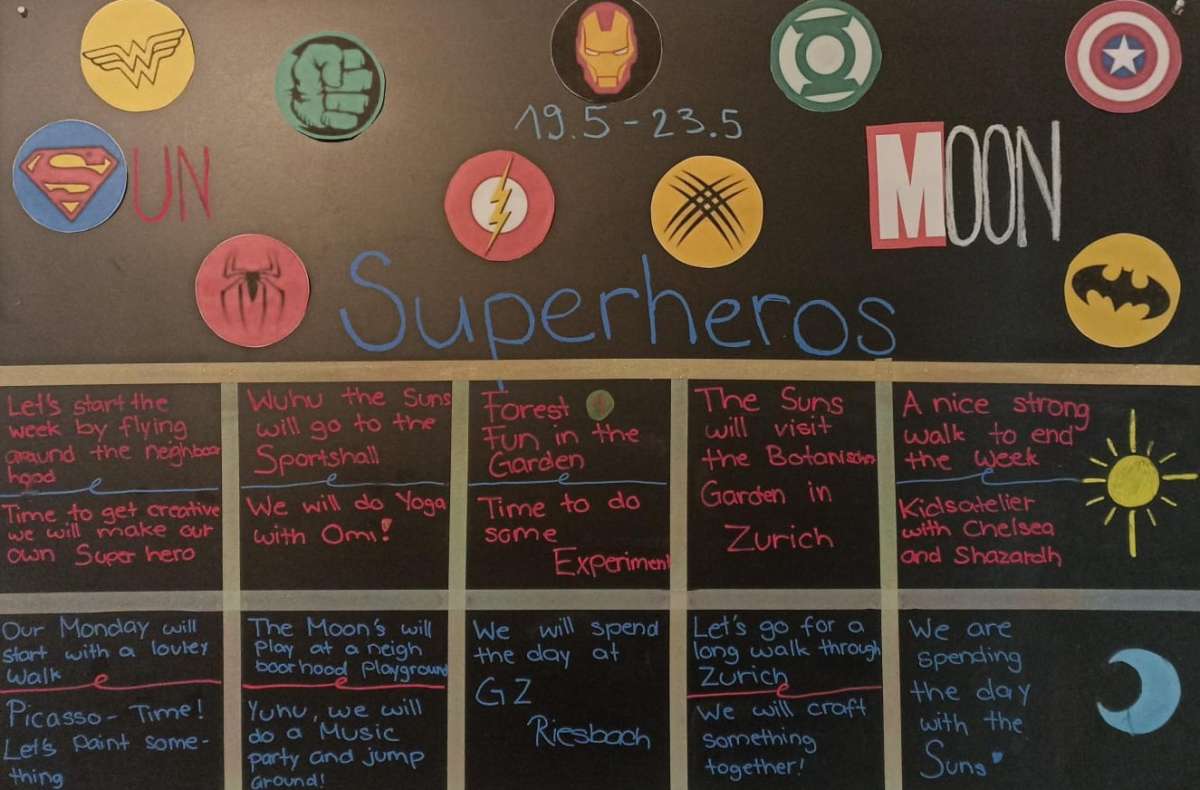 19.5 - 23.5
SUN
MOON
Superheros
Let's start the
week by flying
around the neighboor
hood
Time to get creative
we will make our
own Super hero
Wuhu the Suns
will go to the
Sportshall
We will do Yoga
with Omi!
Forest
Fun in the
Garden
Time to do
some
Experiment
The Suns
will visit
the Botanischen
Garden in
Zurich
A nice strong
walk to end
the week
Kidsatelier
with Chelsea
and Shazardh
Our Monday will
start with a lovley
walk
Picasso - Time!
Let's paint some-
thing
The Moon's will
play at a neigh
boorhood playground
Yuhu, we will
do a Music
party and jump
around!
We will spend
the day at
GZ
Riesbach
Let's go for a
long walk through
Zurich
We will craft
something
together!
We are
spending
the day
with the
Suns